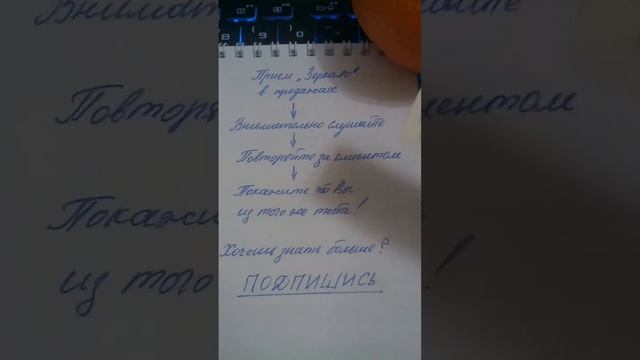 Прием „Зеркало“
в продажах
Внимательно слушайте
Повторяйте за клиентом
Покажите что Вы
из того же теста!
Хочешь знать больше?
ПОДПИШИСЬ